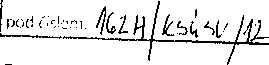 pod číslem: 162H/KSÚSV/12